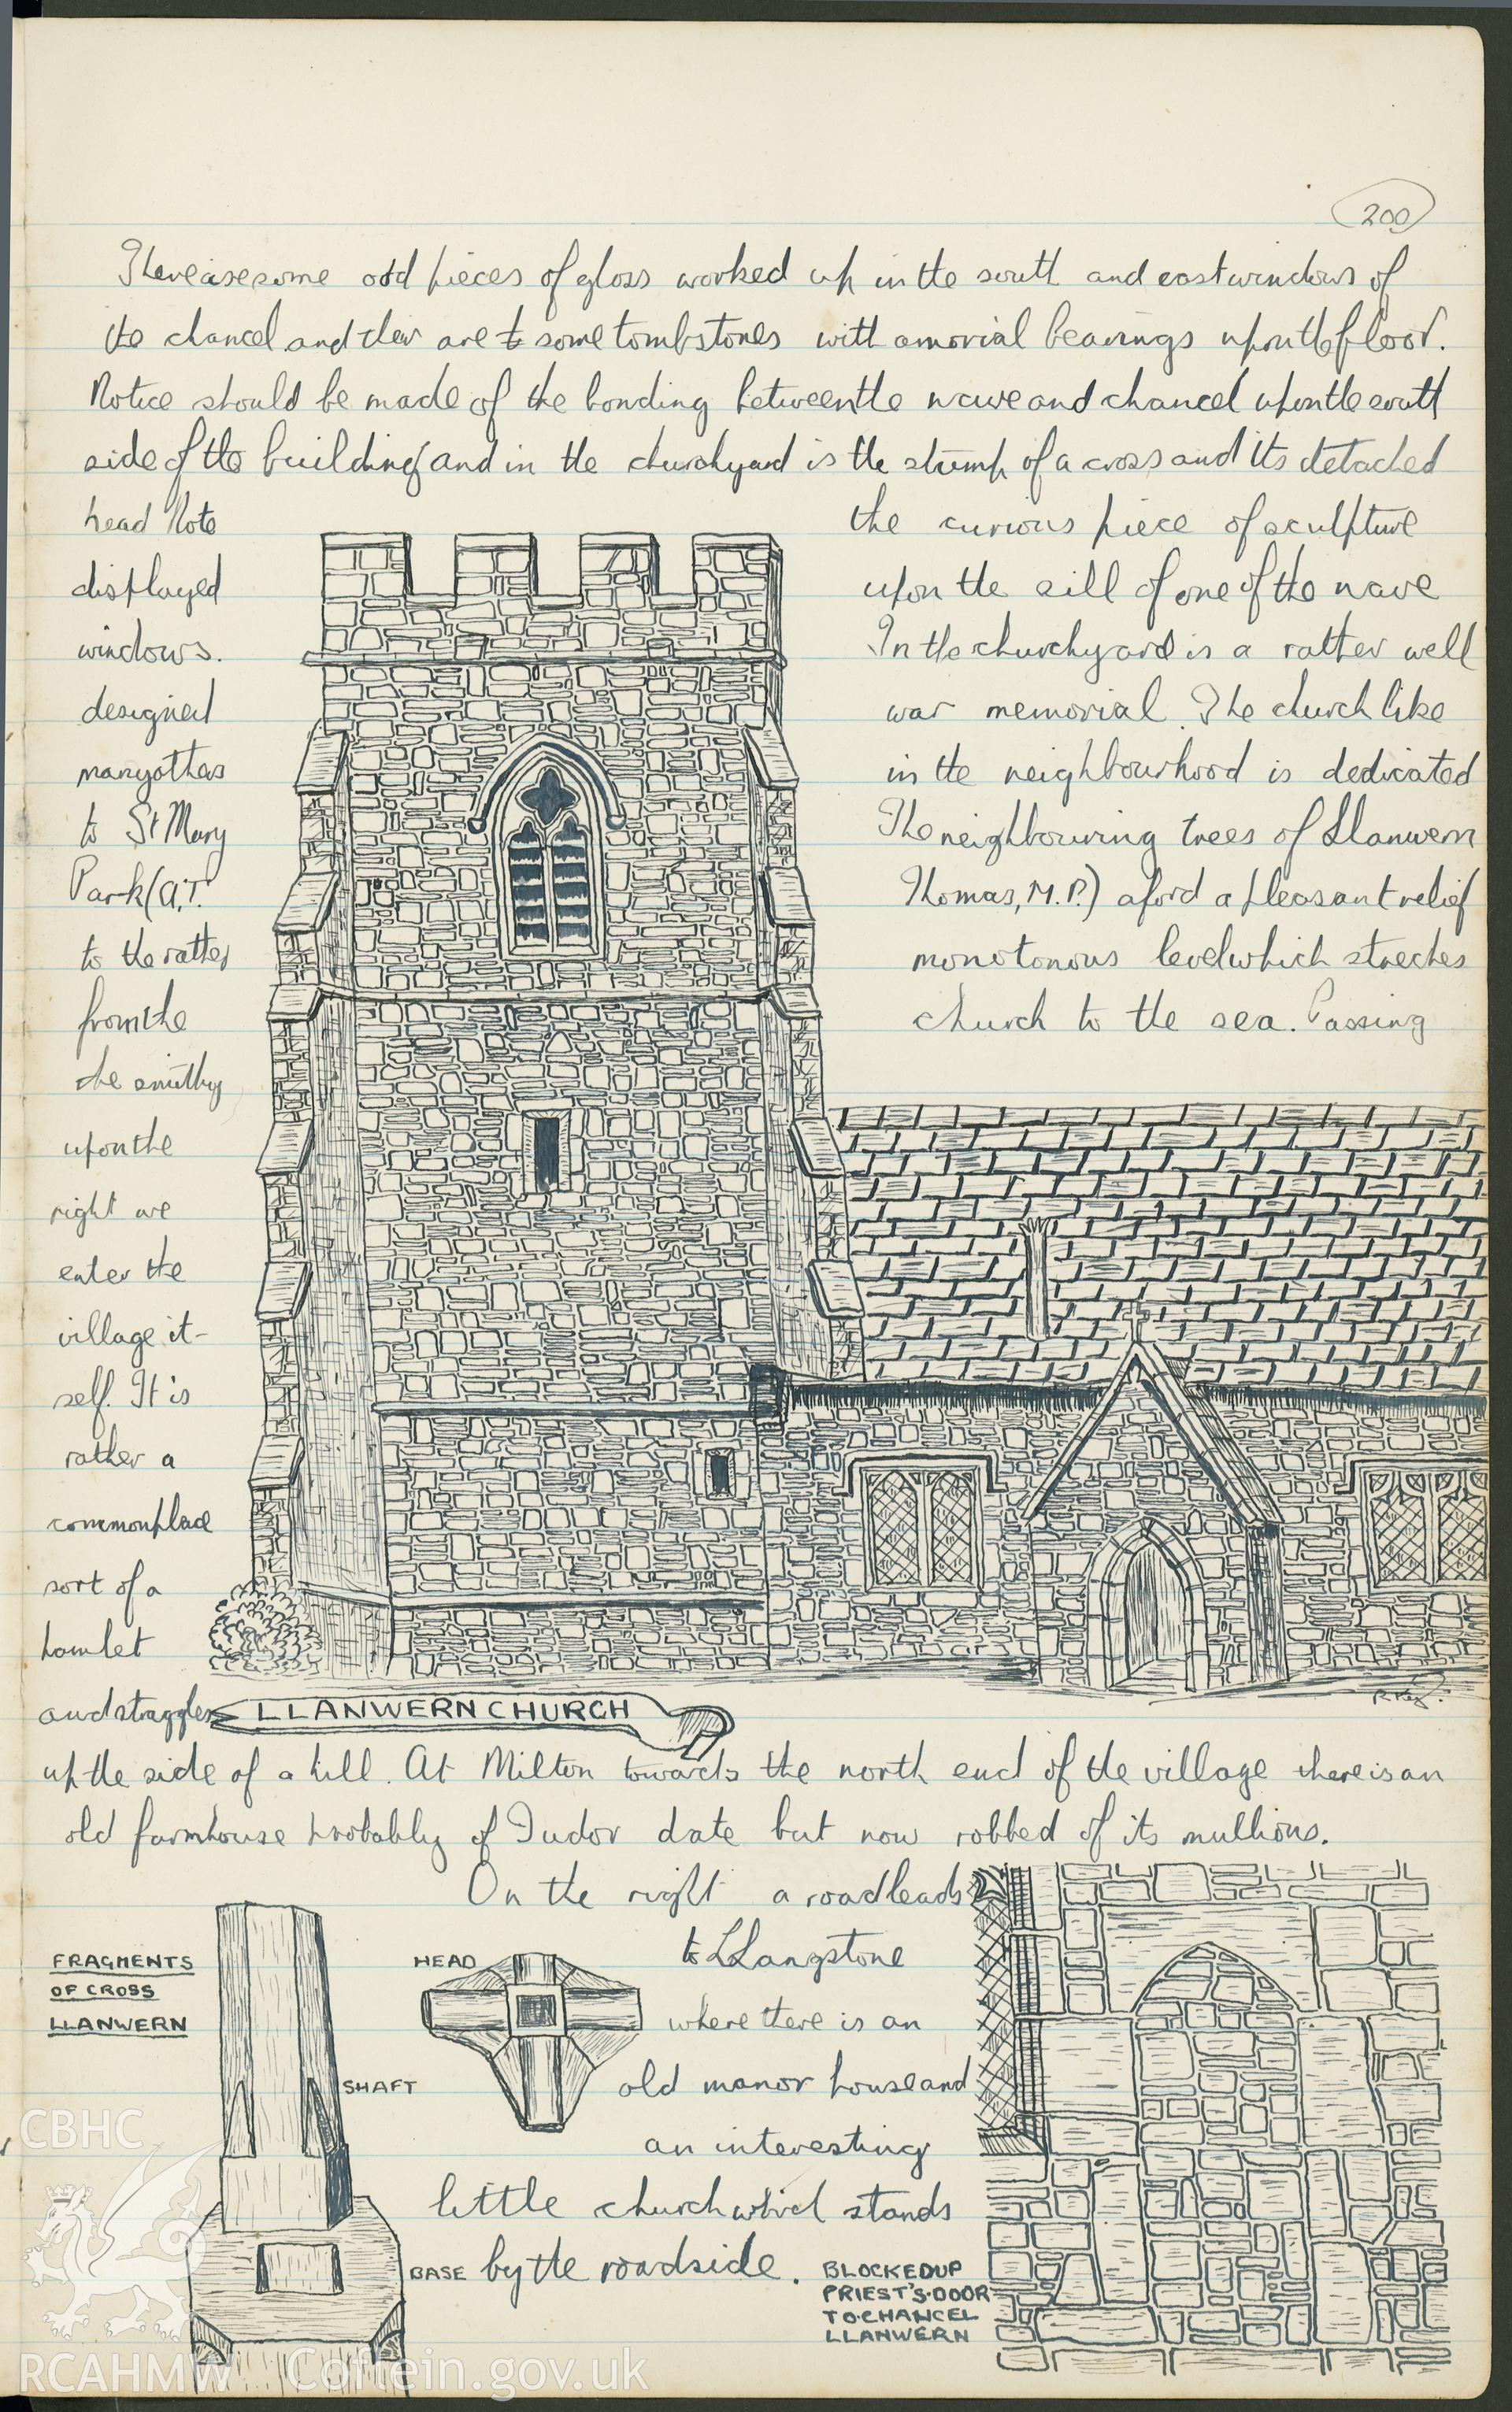 200
There are some odd pieces of glass worked up in the south and east windows of
the chancel and ther are to some tombstones with amorial bearings upon the floor.
Notice should be made of the bonding between the nave and chancel upon the south
side of the building and in the churchyard is the stump of a cross and its detached
head Note the curious piece of sculpture
displayed upon the sill of one of the nave
windows. In the churchyard is a rather well
designed war memorial. The church like
many others in the neighbourhood is dedicated
to St Mary The neighbouring trees of Llanwern
Park (A.T. Thomas, M.P.) aford a pleasant relief
to the rather monotonous level which streches
from the church to the sea. Passing
the smithy
upon the
right we
enter the
village it-
self. It is
rather a
commonplace
sort of a
hamlet
and straggles LLANWERN CHURCH
up the side of a hill. At Milton towards the north end of the village there is an
old farmhouse probably of Tudor date but now robbed of its mullions.
On the right a road leads
to Llangstone
where there is an
old manor house and
an interesting
little church which stands
by the roadside.
FRAGMENTS
OF CROSS
LLANWERN
HEAD
SHAFT
BASE
BLOCKED UP
PRIEST'S·DOOR
TO·CHANCEL
LLANWERN
CBHC
RCAHMW Coflein.gov.uk